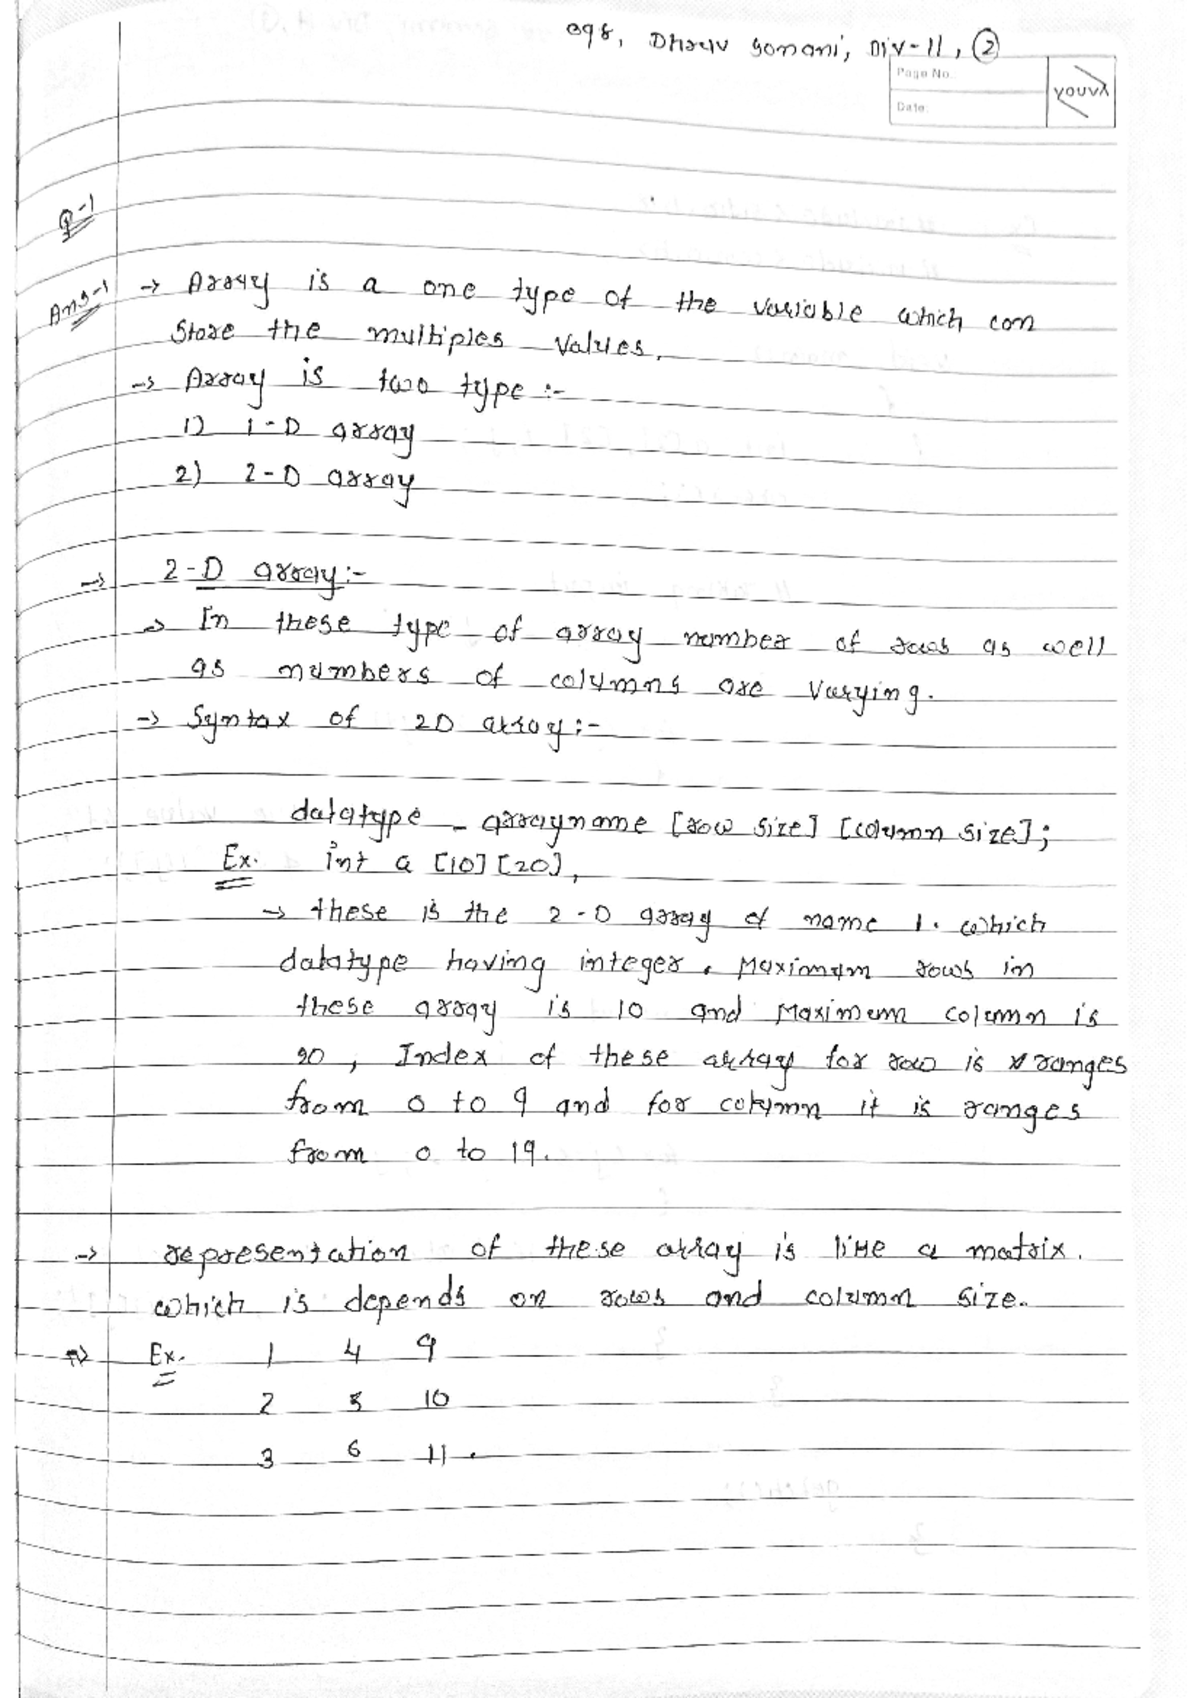 098, Dhruv Somani, Div-11, 2
Page No.
Date:
YOUVA
Q-1
Ans-1 → Array is a one type of the variable which can
Store the multiples values.
→ Array is two type :-
1) 1-D array
2) 2-D array
→ 2-D array :-
→ In these type of array number of rows as well
as numbers of columns are varying.
→ Syntax of 2D array :-
datatype - arrayname [row size] [column size];
Ex. int a [10] [20],
→ these is the 2-D array of name 1. which
datatype having integer. Maximum rows in
these array is 10 and Maximum column is
20, Index of these array for row is ranges
from 0 to 9 and for column it is ranges
from 0 to 19.
→ representation of these array is like a matrix.
which is depends on rows and column size.
→ Ex. 1 4 9
2 5 10
3 6 11.